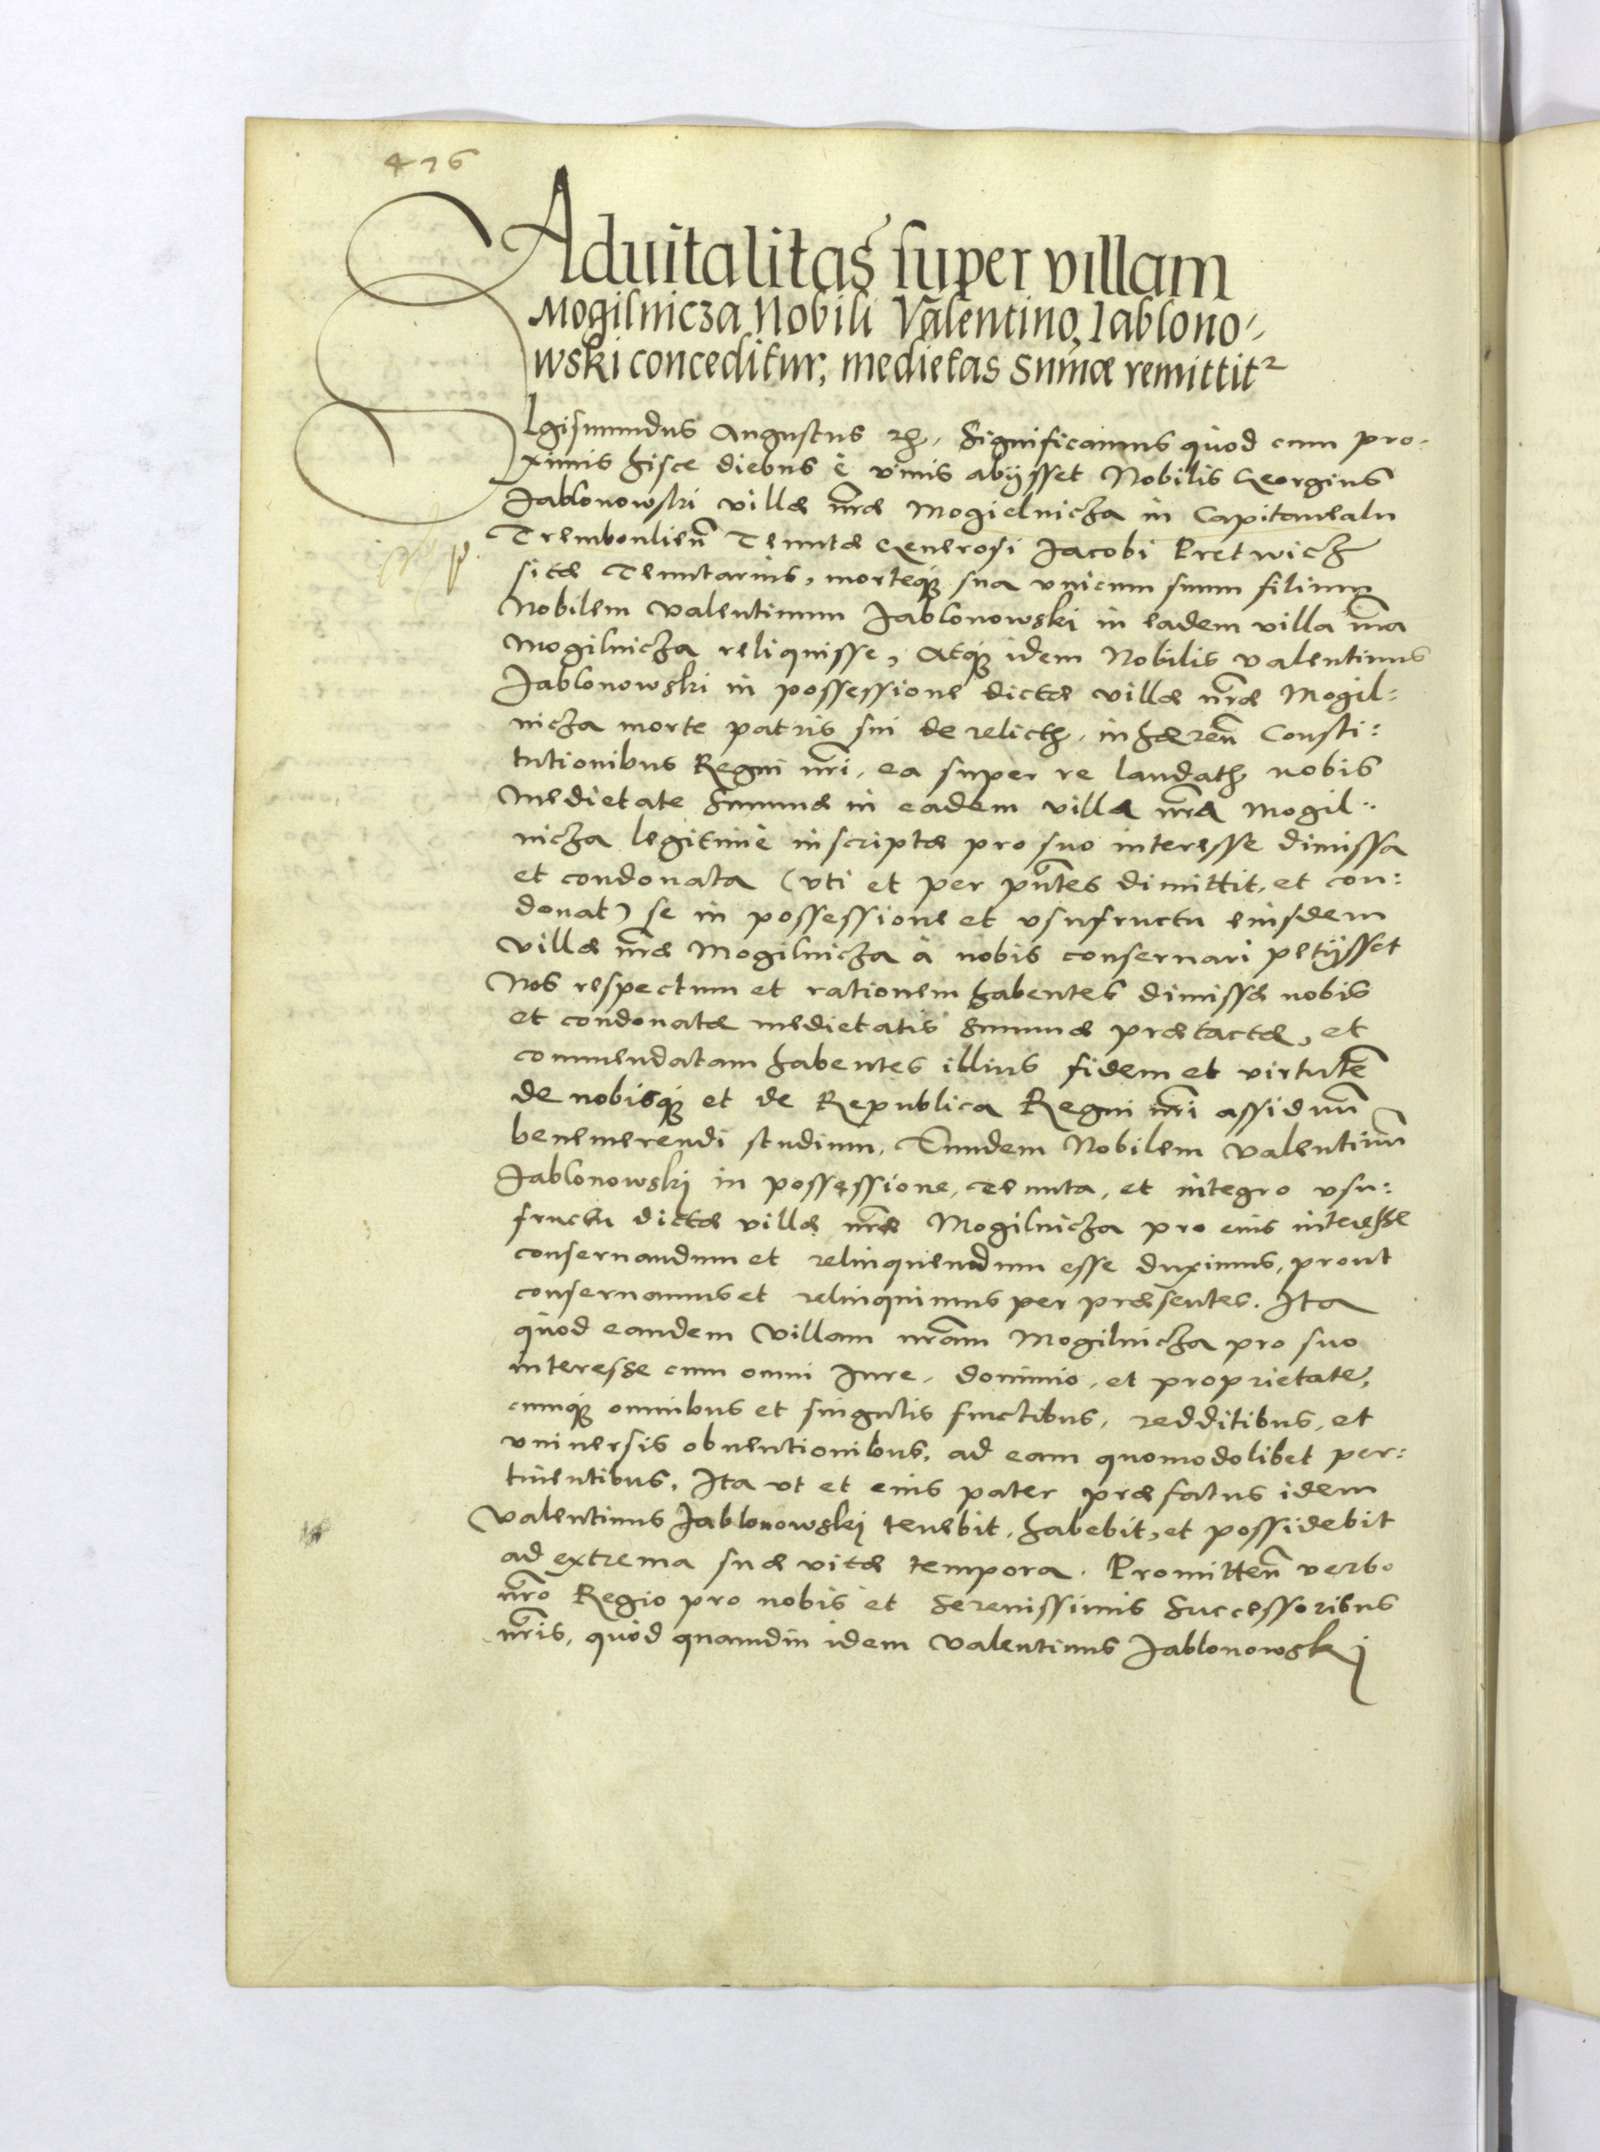 476
Aduitalitas super villam
Mogilnicza Nobili Valentino Iablono-
wski conceditur, medietas Sumæ remittitr
SIgismundus Augustus rc. Significamus quod cum pro-
ximis hisce diebus è viuis abijsset Nobilis Georgius
Jablonowski villæ nræ Mogielnicza in Capitaneatu
Tremboulien Tenutæ Generosi Jacobi Pretwicz
sitæ Tenutarius, morteq sua vnicum suum filium
Nobilem Valentinum Jablonowski in eadem villa nra
Mogilnicza reliquisse, Atq idem Nobilis Valentinus
Jablonowski in possessione dictæ villæ nræ Mogil-
nicza morte patris sui derelict, inhæren Consti:
tutionibus Regni nri, ea super re laudat, nobis
Medietate Summæ in eadem villa nra Mogil-
nicza legitimè inscriptæ pro suo interesse dimissa
et condonata (vti et per pntes dimittit, et con:
donat) se in possessione et vsufructu eiusdem
Villæ nræ Mogilnicza à nobis conseruari petijsset
Nos respectum et rationem habentes dimissæ nobis
et condonatæ medietatis Summæ prætactæ, et
commendatam habentes illius fidem et virtutem
de nobisq et de Republica Regni nri assiduum
benemerendi studium, Eundem Nobilem Valentinum
Jablonowskj in possessione, tenuta, et integro vsu:
fructu dictæ villæ nræ Mogilnicza pro eius interesse
conseruandum et relinquendum esse duximus, prout
conseruamus et relinquimus per præsentes. Ita
quòd eandem Villam nram Mogilnicza pro suo
interesse cum omni Jure, dominio, et proprietate,
cumq omnibus et singulis fructibus, redditibus, et
vniuersis obuentionibus, ad eam quomodolibet per:
tinentibus, Ita vt et eius pater præfatus idem
Valentinus Jablonowskj tenebit, habebit, et possidebit
ad extrema suæ vitæ tempora. Promitten verbo
nro Regio pro nobis et Serenissimis Successoribus
nris, quòd quamdiu idem Valentinus Jablonowskj